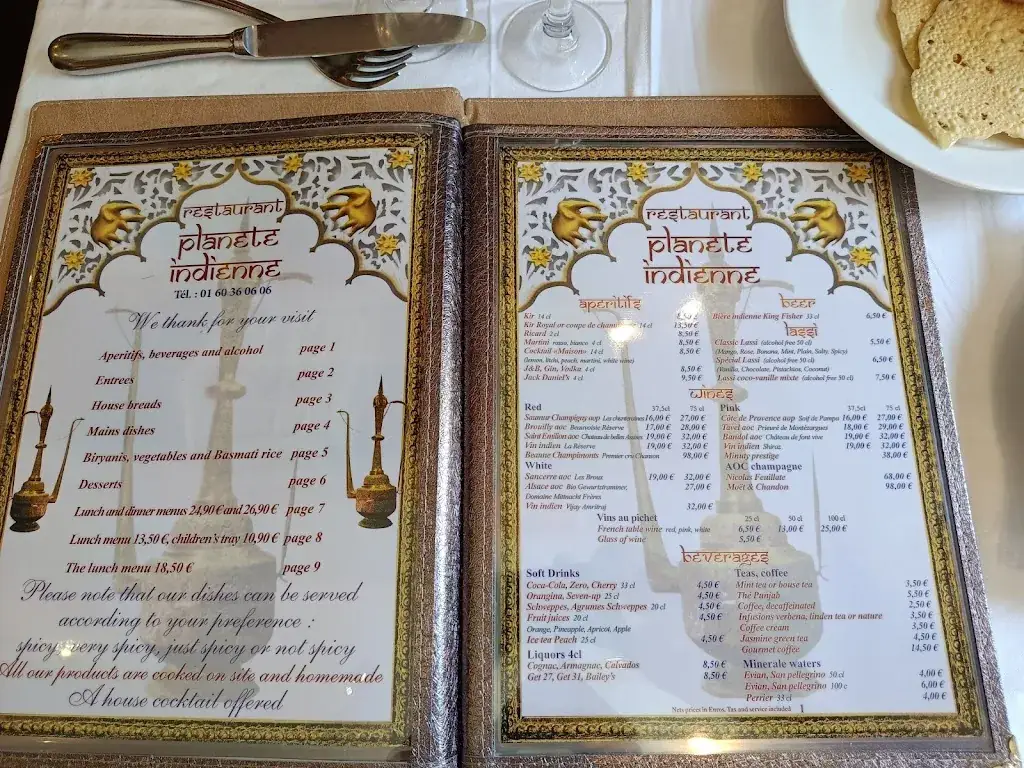 restaurant
planete
indienne
Tél. : 01 60 36 06 06
We thank for your visit
Aperitifs, beverages and alcohol page 1
Entrees page 2
House breads page 3
Mains dishes page 4
Biryanis, vegetables and Basmati rice page 5
Desserts page 6
Lunch and dinner menus 24,90 € and 26,90 € page 7
Lunch menu 13,50 €, children's tray 10,90 € page 8
The lunch menu 18,50 € page 9
Please note that our dishes can be served
according to your preference :
spicy, very spicy, just spicy or not spicy
All our products are cooked on site and homemade
A house cocktail offered
restaurant
planete
indienne
aperitifs
Kir 14 cl
Kir Royal or coupe de champagne 14 cl 13,50 €
Ricard 2 cl 8,50 €
Martini rosso, bianco 4 cl 8,50 €
Cocktail «Maison» 14 cl 8,50 €
(lemon, litchi, peach, martini, white wine)
J&B, Gin, Vodka 4 cl 8,50 €
Jack Daniel's 4 cl 9,50 €
beer
Bière indienne King Fisher 33 cl 6,50 €
lassi
Classic Lassi (alcohol free 50 cl) 5,50 €
(Mango, Rose, Banana, Mint, Plain, Salty, Spicy)
Spécial Lassi (alcohol free 50 cl) 6,50 €
(Vanilla, Chocolate, Pistachios, Coconut)
Lassi coco-vanille mixte (alcohol free 50 cl) 7,50 €
wines
Red 37,5cl 75 cl
Saumur Champigny aop Les chentrennes 16,00 € 27,00 €
Brouilly aoc Beauvoisie Réserve 17,00 € 28,00 €
Saint Emilion aoc Chateau de belles Assises 19,00 € 32,00 €
Vin indien La Réserve 19,00 € 32,00 €
Beaune Champimonts Premier cru Chanson 98,00 €
White
Sancerre aoc Les Broux 19,00 € 32,00 €
Alsace aoc Bio Gewurtztraminer, 27,00 €
Domaine Mittnacht Frères
Vin indien Vijay Amritraj 32,00 €
Pink 37,5cl 75 cl
Côte de Provence aop Soif de Pampa 16,00 € 27,00 €
Tavel aoc Prieuré de Montézargues 18,00 € 29,00 €
Bandol aoc Château de font vive 19,00 € 32,00 €
Vin indien Shiraz 19,00 € 32,00 €
Minuty prestige 38,00 €
AOC champagne
Nicolas Feuillate 68,00 €
Moët & Chandon 98,00 €
Vins au pichet 25 cl 50 cl 100 cl
French table wine red, pink, white 6,50 € 13,00 € 25,00 €
Glass of wine 5,50 €
beverages
Soft Drinks
Coca-Cola, Zero, Cherry 33 cl 4,50 €
Orangina, Seven-up 25 cl 4,50 €
Schweppes, Agrumes Schweppes 20 cl 4,50 €
Fruit juices 20 cl 4,50 €
Orange, Pineapple, Apricot, Apple
Ice tea Peach 25 cl 4,50 €
Liquors 4cl
Cognac, Armagnac, Calvados 8,50 €
Get 27, Get 31, Bailey's 8,50 €
Teas, coffee
Mint tea or house tea 3,50 €
Thé Punjab 5,50 €
Coffee, decaffeinated 2,50 €
Infusions verbena, linden tea or nature 3,50 €
Coffee cream 3,50 €
Jasmine green tea 4,50 €
Gourmet coffee 14,50 €
Minerale waters
Evian, San pellegrino 50 cl 4,00 €
Evian, San pellegrino 100 c 6,00 €
Perrier 33 cl 4,00 €
Nets prices in Euros, Tax and service included 1